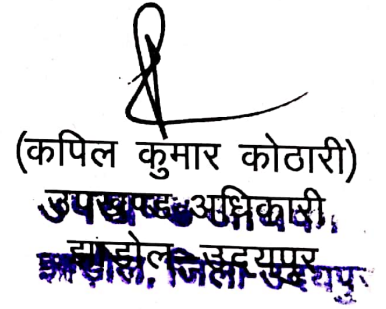 (कपिल कुमार कोठारी)
उपखण्ड अधिकारी
झाडोल, उदयपुर
झाडोल, जिला-उदयपुर